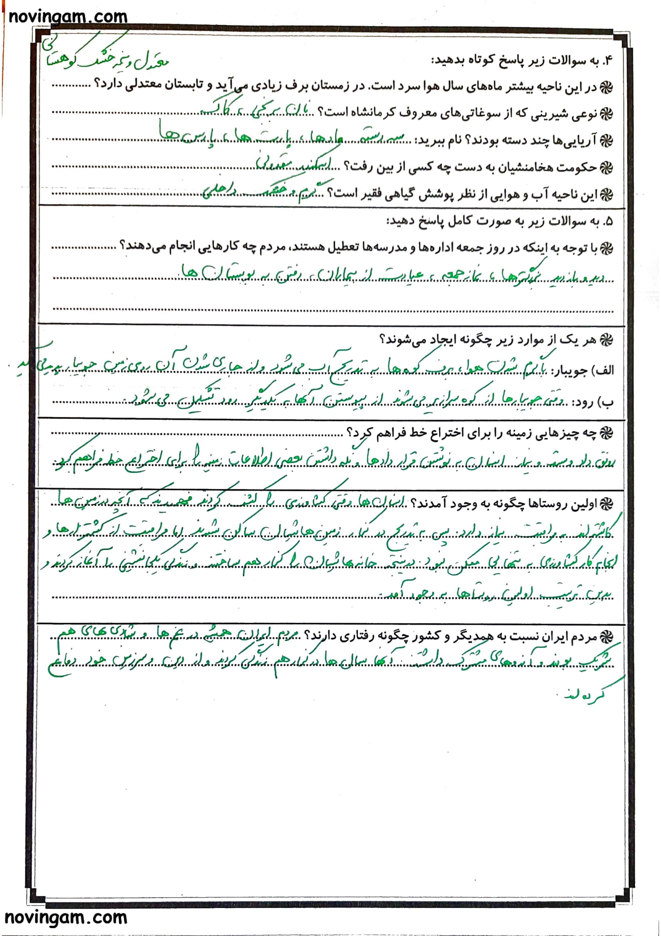 novingam.com
۴. به سوالات زیر پاسخ کوتاه بدهید:
معتدل و نیمه خشک کوهستانی
در این ناحیه بیشتر ماه‌های سال هوا سرد است. در زمستان برف زیادی می‌آید و تابستان معتدلی دارد؟
نوعی شیرینی که از سوغاتی‌های معروف کرمانشاه است؟ نان برنجی، کاک
آریایی‌ها چند دسته بودند؟ نام ببرید: سه دسته مادها، پارت ها، پارس ها
حکومت هخامنشیان به دست چه کسی از بین رفت؟ اسکندر مقدونی
این ناحیه آب و هوایی از نظر پوشش گیاهی فقیر است؟ گرم و خشک داخلی
۵. به سوالات زیر به صورت کامل پاسخ دهید:
با توجه به اینکه در روز جمعه اداره‌ها و مدرسه‌ها تعطیل هستند، مردم چه کارهایی انجام می‌دهند؟
دید و بازدید بزرگترها، نماز جمعه، عیادت از بیماران، رفتن به بوستان ها
هر یک از موارد زیر چگونه ایجاد می‌شوند؟
الف) جویبار: با گرم شدن هوا، برف کوه ها به تدریج آب می شود و از جاری شدن آن روی زمین جویبار پدید می آید.
ب) رود: وقتی جویبارها از کوه سرازیر می شوند از پیوستن آنها به یکدیگر رود تشکیل می شود.
چه چیزهایی زمینه را برای اختراع خط فراهم کرد؟
رونق داد و ستد و نیاز انسان به نوشتن قرار دادها و نگه داشتن بعضی اطلاعات زمینه را برای اختراع خط فراهم کرد.
اولین روستاها چگونه به وجود آمدند؟ انسان ها وقتی کشاورزی را کشف کردند فهمیدند که آنچه در زمین ها
کاشته اند به مراقبت نیاز دارد. پس به تدریج در کنار زمین هایشان ساکن شدند اما مراقبت از کشتزارها و
انجام کار کشاورزی به تنهایی ممکن نبود. در نتیجه خانه هایشان را کنار هم ساختند و زندگی یکجانشینی را آغاز کردند و
بدین ترتیب اولین روستاها به وجود آمد.
مردم ایران نسبت به همدیگر و کشور چگونه رفتاری دارند؟ مردم ایران همیشه در غم ها و شادی های هم
شریک بودند و آرزوهای مشترک داشتند. آنها سالها در کنار هم زندگی کردند و از این سرزمین خود دفاع
کرده اند.
novingam.com